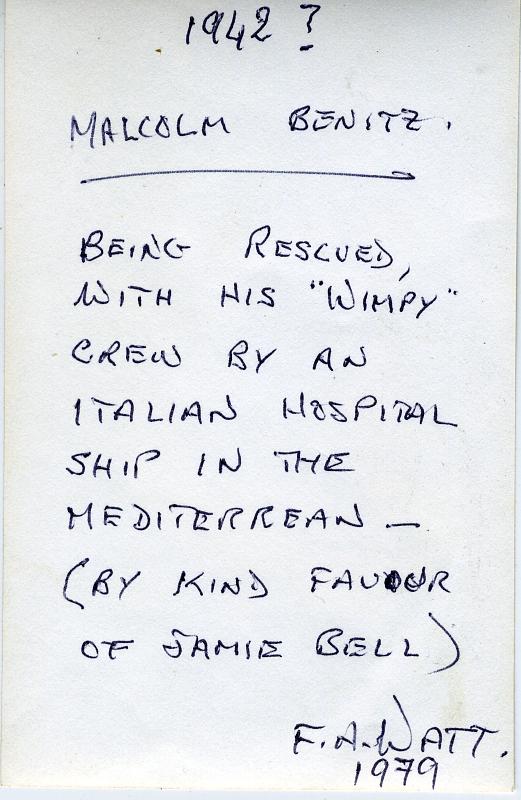 1942?
MALCOLM BENITZ.
BEING RESCUED,
WITH HIS "WIMPY"
CREW BY AN
ITALIAN HOSPITAL
SHIP IN THE
MEDITERREAN —
(BY KIND FAVOUR
OF JAMIE BELL)
F.A.WATT.
1979